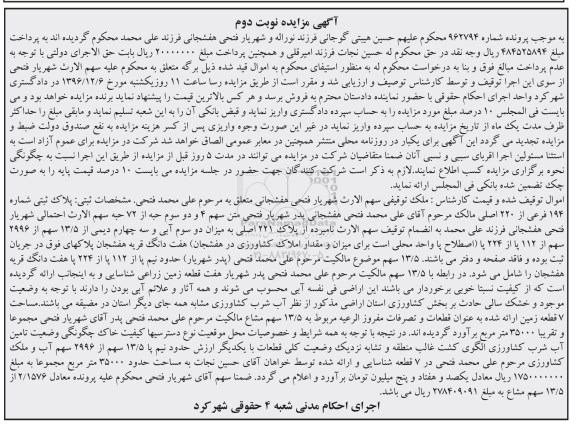 آگهی مزایده نوبت دوم
به موجب پرونده شماره ۹۶۲۷۹۴ محکوم علیهم حسین هیبتی گوجانی فرزند نوراله و شهریار فتحی هفشجانی فرزند علی محمد محکوم گردیده اند به پرداخت
مبلغ ۴۸۴۵۲۵۸۹۴ ریال وجه نقد در حق محکوم له حسین نجات فرزند امیرقلی و همچنین پرداخت مبلغ ۲۰۰۰۰۰۰۰ ریال بابت حق الاجرای دولتی با توجه به
عدم پرداخت مبالغ فوق و بنا به درخواست محکوم له به منظور استیفای محکوم به اموال قید شده ذیل برگه متعلق به محکوم علیه سهم الارث شهریار فتحی
از سوی این اجرا توقیف و توسط کارشناس توصیف و ارزیابی شد و مقرر است از طریق مزایده رسا ساعت ۱۱ روزیکشنبه مورخ ۱۳۹۶/۱۲/۶ در دادگستری
شهرکرد واحد اجرای احکام حقوقی با حضور نماینده دادستان محترم به فروش برسد و هر کس بالاترین قیمت را پیشنهاد نماید برنده مزایده خواهد بود و می
بایست فی المجلس ۱۰ درصد مبلغ مورد مزایده را به حساب سپرده دادگستری واریز نماید و قبض بانکی آن را به این شعبه تسلیم نماید و مابقی مبلغ را حداکثر
ظرف مدت یک ماه از تاریخ مزایده به حساب سپرده واریز نماید در غیر این صورت وجوه واریزی پس از کسر هزینه مزایده به نفع صندوق دولت ضبط و
مزایده تجدید می گردد این آگهی برای یکبار در روزنامه محلی منتشر همچنین در معابر عمومی الصاق خواهد شد شرکت در مزایده برای عموم آزاد است به
استثنا مسئولین اجرا اقربای سببی و نسبی آنان ضمنا متقاضیان شرکت در مزایده می توانند در مدت ۵ روز قبل از مزایده از طریق این اجرا نسبت به چگونگی
نحوه برگزاری مزایده کسب اطلاع نمایند.لازم به ذکر است شرکت کنندگان جهت حضور در جلسه مزایده می بایست ۱۰ درصد قیمت پایه را به صورت
چک تضمین شده بانکی فی المجلس ارائه نماید.
اموال توقیف شده و قیمت کارشناس : ملک توقیفی سهم الارث شهریار فتحی هفشجانی متعلق به مرحوم علی محمد فتحی. مشخصات ثبتی: پلاک ثبتی شماره
۱۹۴ فرعی از ۲۲۰ اصلی مالک مرحوم آقای علی محمد فتحی هفشجانی پدر شهریار فتحی متن سهم ۴ و دو سوم حبه از ۷۲ حبه سهم الارث احتمالی شهریار
فتحی هفشجانی فرزند علی محمد به انضمام توقیف سهم الارث نامبرده از پلاک ۲۲۱ اصلی به میزان دو سوم آبی و سه چهارم دیمی از ۱۳/۵ سهم از ۲۹۹۶
سهم از ۱۱۲ پا از ۲۲۴ پا (اصطلاح پا واحد محلی است برای میزان و مقدار املاک کشاورزی در هفشجان) هفت دانگ قریه هفشجان پلاکهای فوق در جریان
ثبت بوده و فاقد صفحه و دفتر می باشند. ۱۳/۵ سهم موضوع مالکیت مرحوم علی محمد فتحی (پدر شهریار) حدود نیم پا از ۱۱۲ پا از ۲۲۴ پا هفت دانگ قریه
هفشجان را شامل می شود. در رابطه با ۱۳/۵ سهم مالکیت مرحوم علی محمد فتحی پدر شهریار هفت قطعه زمین زراعی شناسایی و به اینجانب ارائه گردیده
است که از کیفیت نسبتا خوبی برخوردار می باشند این اراضی فی نفسه آبی محسوب می شوند و همه آثار و علائم آبی بودن را دارند با توجه به وضعیت
موجود و خشک سالی حادث بر بخش کشاورزی استان اراضی مذکور از نظر آب شرب کشاورزی مشابه همه جای دیگر استان در مضیقه می باشند.مساحت
۷ قطعه زمین ارائه شده به عنوان قطعات و تصرفات مفروز الرعیه مربوط به ۱۳/۵ سهم مشاع مالکیت مرحوم علی محمد فتحی پدر آقای شهریار فتحی مجموعا
و تقریبا ۳۵۰۰۰ متر مربع برآورد گردیده اند. در نتیجه با توجه به همه شرایط و خصوصیات محل موقعیت نوع دسترسیها کیفیت خاک چگونگی وضعیت تامین
آب شرب کشاورزی الگوی کشت غالب منطقه و تشابه نزدیک وضعیت کلی قطعات با یکدیگر ارزش حدود نیم پا ۱۳/۵ سهم از ۲۹۹۶ سهم آب و ملک
کشاورزی مرحوم علی محمد فتحی در ۷ قطعه شناسایی و ارائه شده توسط خواهان آقای حسین نجات به مساحت حدود ۳۵۰۰۰ متر مربع مجموعا به مبلغ
۱۷۵۰۰۰۰۰۰۰ ریال معادل یکصد و هفتاد و پنج میلیون تومان برآورد و اعلام می گردد. ضمنا سهم آقای شهریار فتحی محکوم علیه پرونده معادل ۲/۱۵۷۶ از
۱۳/۵ سهم مشاع به مبلغ ۲۷۸۴۰۹۰۹۱ ریال می باشد.
اجرای احکام مدنی شعبه ۴ حقوقی شهرکرد